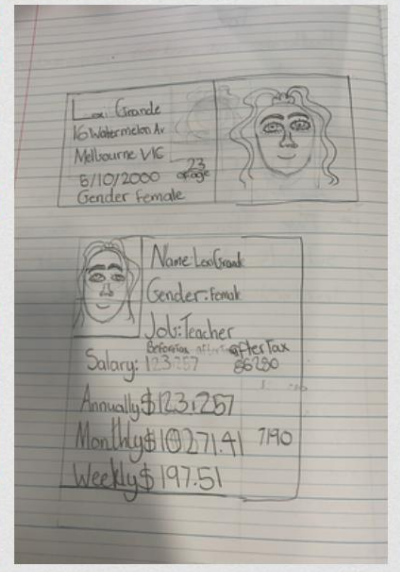 Grande
16 Watermelon Av
Melbourne VIC
5/10/2000
23
of age
Gender Female
Name
Gender: Female
Job: Teacher
Before tax
After Tax
Salary: 123257 86280
Annually $123,257
Monthly $10271.41 7190
Weekly $197.51